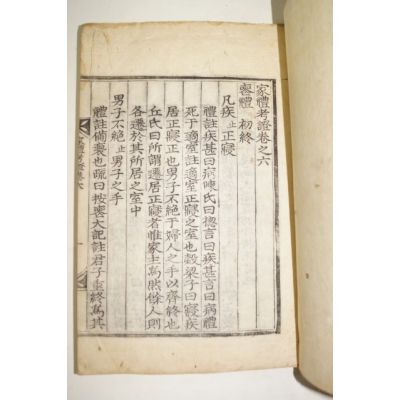 家禮考證卷之六
喪禮 初終
凡疾止正寢
禮註疾甚曰病陳氏曰揔言曰疾甚言曰病禮
死于適室註適室正寢之室也穀梁子曰寢疾
居正寢正也男子不絶于婦人之手以齊終也
丘氏曰所謂遷居正寢者惟家主爲然餘人則
各遷於其所居之室中
男子不絶止男子之手
禮註褻也疏曰按喪大記註君子重終爲其
家禮考證卷六